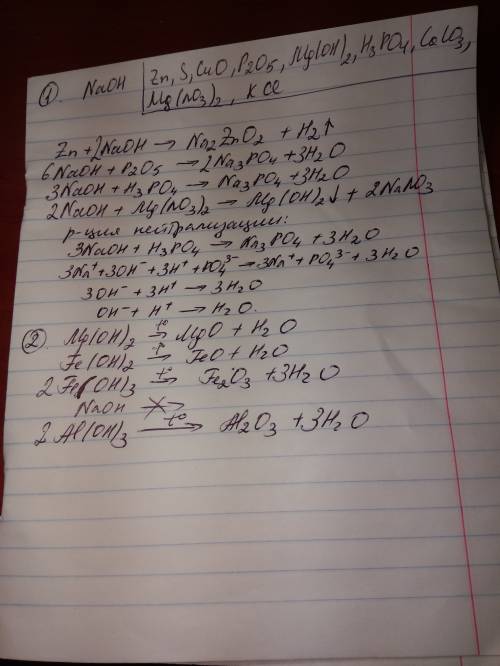 1. NaOH | Zn, S, CuO, P2O5, Mg(OH)2, H3PO4, CaCO3,
Mg(NO3)2, KCl
Zn + 2NaOH → Na2ZnO2 + H2↑
6NaOH + P2O5 → 2Na3PO4 + 3H2O
3NaOH + H3PO4 → Na3PO4 + 3H2O
2NaOH + Mg(NO3)2 → Mg(OH)2↓ + 2NaNO3
р-ция нейтрализации:
3NaOH + H3PO4 → Na3PO4 + 3H2O
3Na⁺ + 3OH⁻ + 3H⁺ + PO4³⁻ → 3Na⁺ + PO4³⁻ + 3H2O
3OH⁻ + 3H⁺ → 3H2O
OH⁻ + H⁺ → H2O.
2. Mg(OH)2 →t° MgO + H2O
Fe(OH)2 →t° FeO + H2O
2Fe(OH)3 →t° Fe2O3 + 3H2O
NaOH ↛
2Al(OH)3 →t° Al2O3 + 3H2O